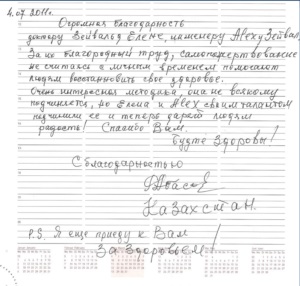 4.07.2011г.
Огромная благодарность
доктору Зейвальд Елене, инженеру Алеху Зейвальд,
За их благородный труд, самопожертвование
не считаясь с личным временем помогают
людям восстановить своё здоровье.
Очень интересная методика, она не всякому
подчиняется, но Елена и Alex своим талантом
подчинили её и теперь дарят людям
радость! Спасибо Вам.
Будьте Здоровы!
С благодарностью
Казахстан.
P.S. Я еще приеду к Вам
За Здоровьем!